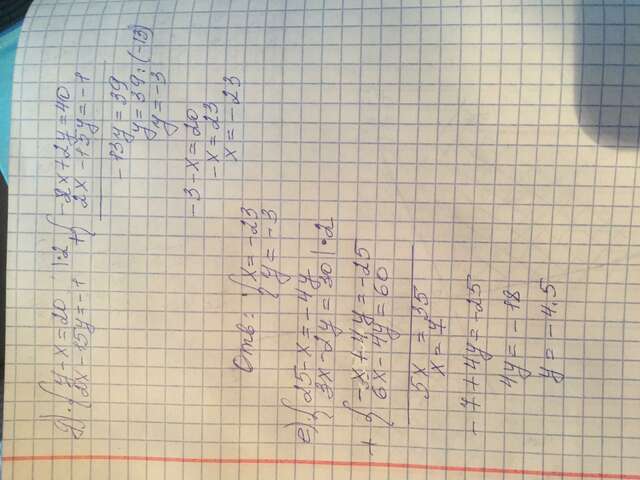 д) { y - x = 20 |·2 + { -2x + 2y = 40
2x - 15y = -1 2x - 15y = -1
-13y = 39
y = 39 : (-13)
y = -3
-3 - x = 20
-x = 23
x = -23
Отв: { x = -23
y = -3
е) { 25 - x = -4y
3x - 2y = 30 |·2
+ { -x + 4y = -25
6x - 4y = 60
5x = 35
x = 7
-7 + 4y = -25
4y = -18
y = -4.5